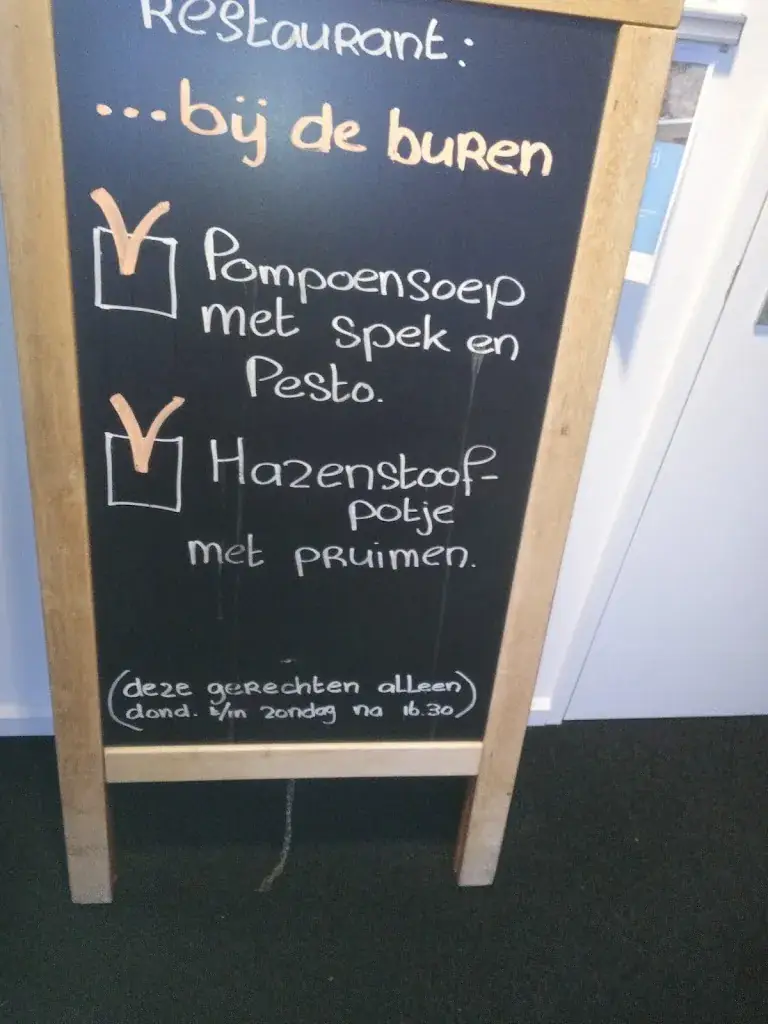 Restaurant:
...bij de buren
Pompoensoep
met spek en
Pesto.
Hazenstoof-
potje
met pruimen.
(deze gerechten alleen
dond. t/m zondag na 16.30)